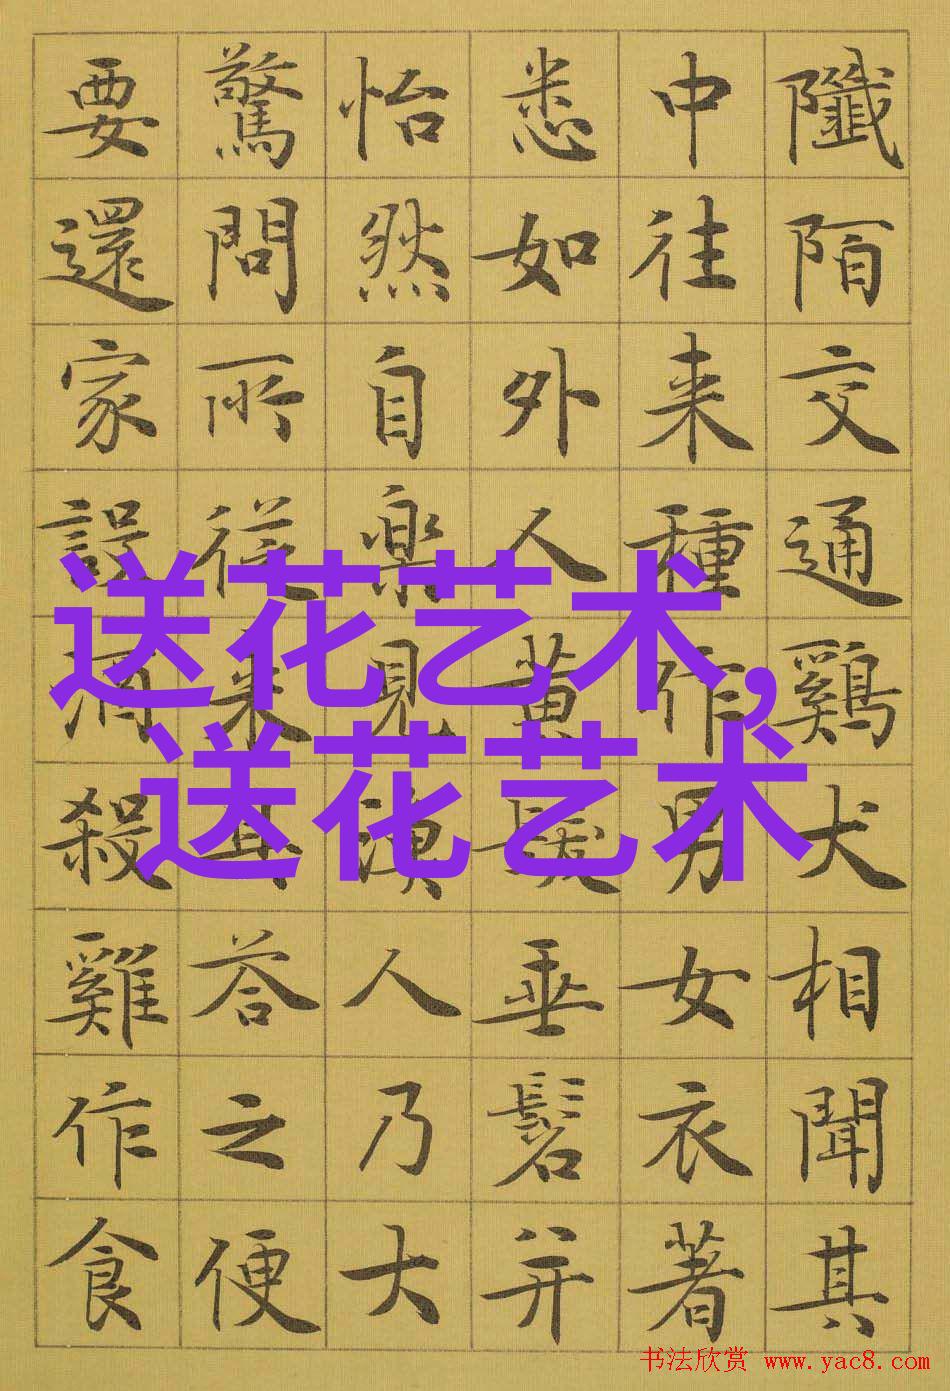 陌交通鷄犬相聞其
中往来種作男女衣著
悉如外人黄髮垂髫并
怡然自楽見漁人乃大
驚問所從来具答之便
要還家設酒殺雞作食
送花艺术,
送花艺术
书法欣赏 www.yac8.com